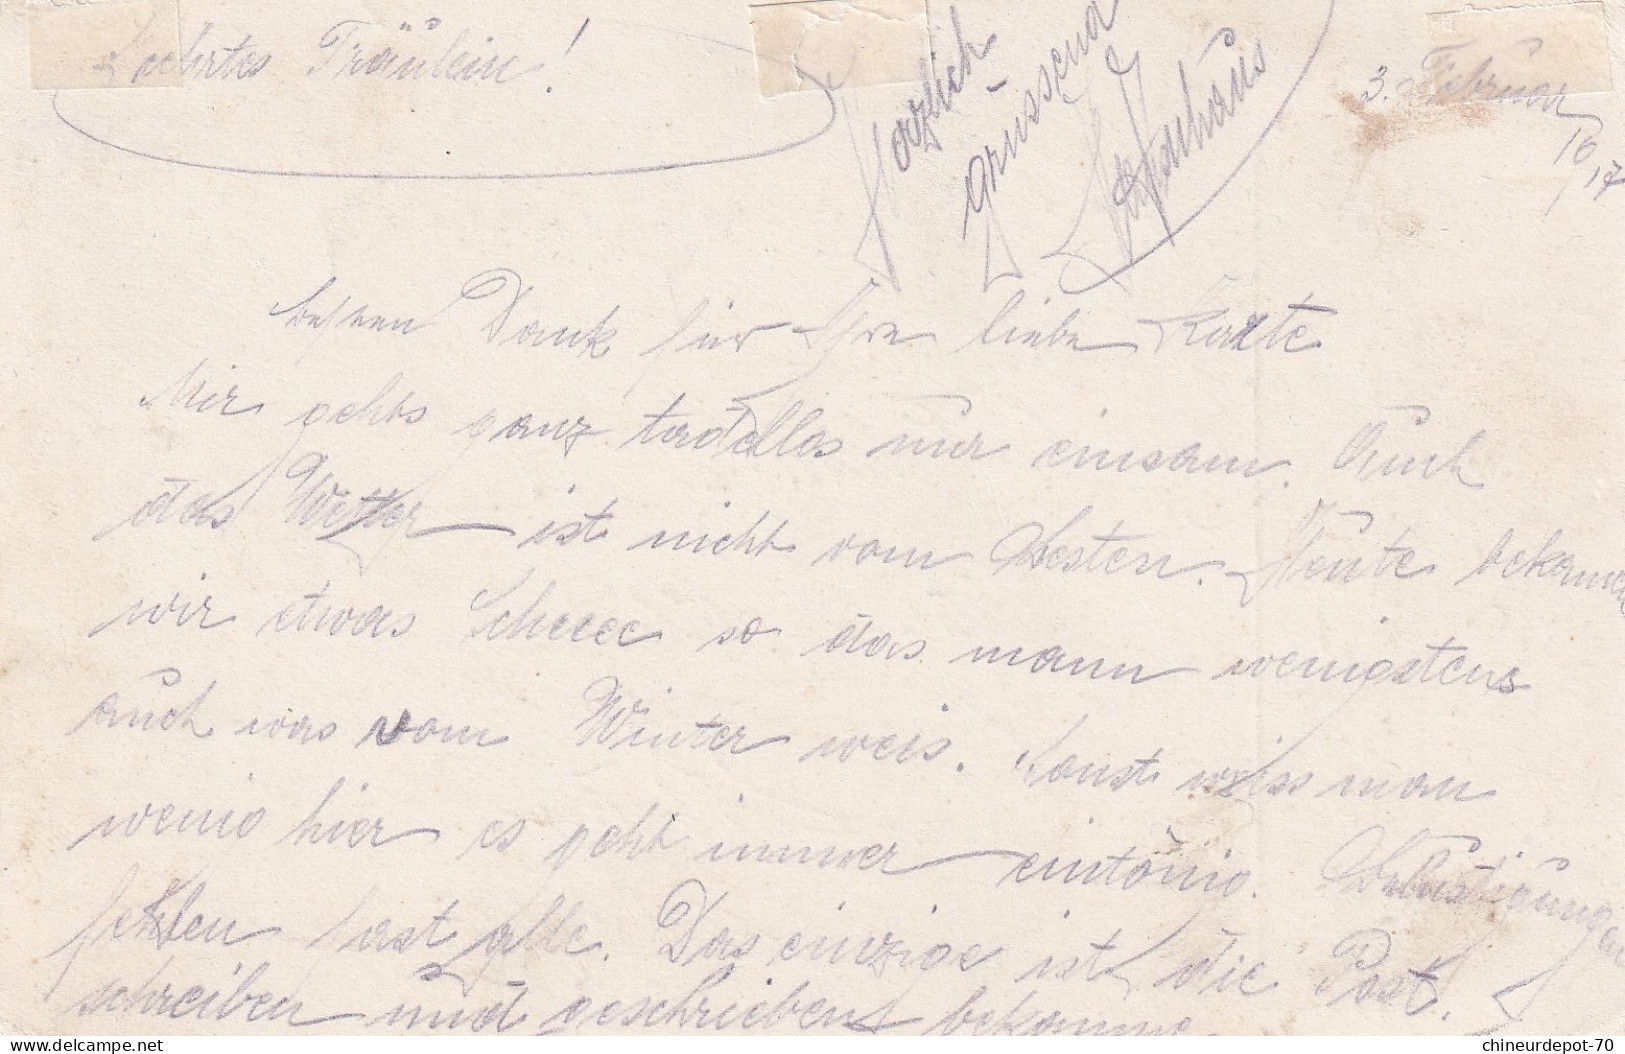 Geehrtes Fräulein!
3. Februar
16/17
Herzlich
grüssend
besten Dank für Ihre liebe Karte
Mir gehts ganz tadellos nur einsam. Auch
das Wetter ist nicht vom Besten. Heute bekamen
wir etwas Schnee so das mann wenigstens
auch was vom Winter weis. Sonst weiss man
wenig hier es geht immer eintönig. Belustigungen
fehlen fast alle. Das einzige ist die Post.
schreiben und geschrieben bekomme
chineurdepot-70